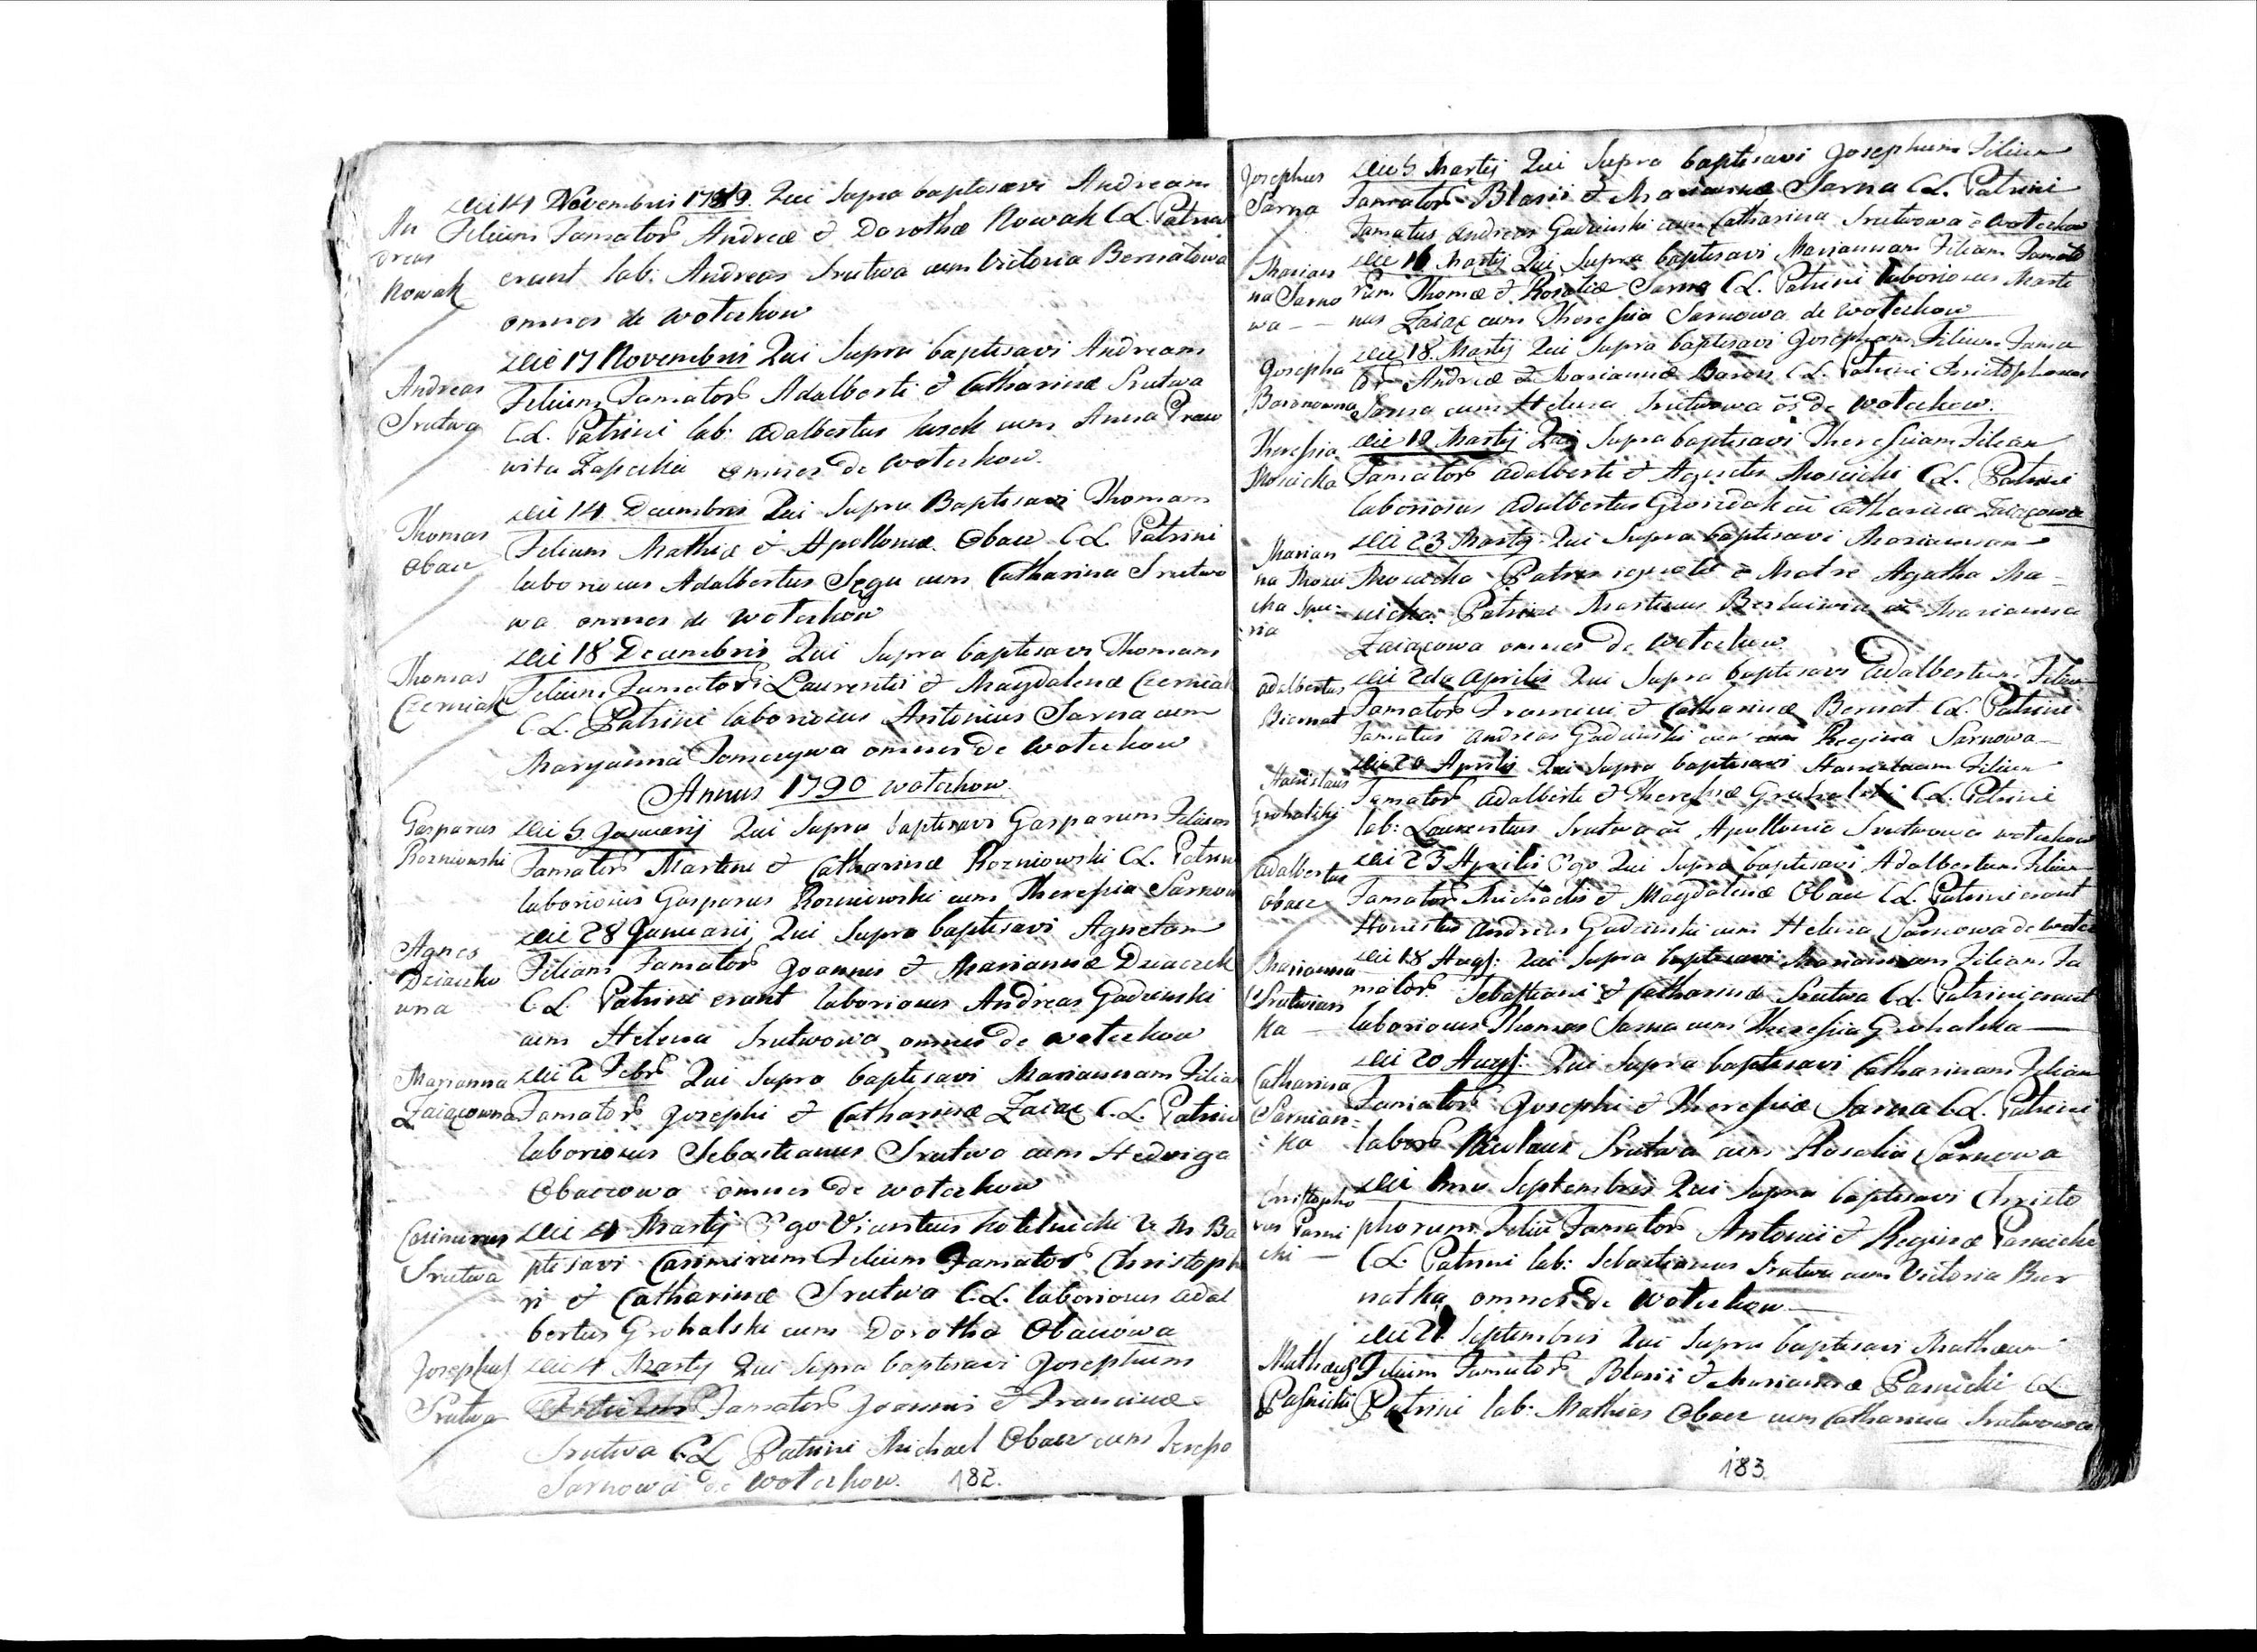 An
dreas
Nowak
Die 14 Novembris 1789. Qui Supra baptisavi Andream
Filium Famator Andreæ & Dorothæ Nowak C.L. Patrini
erunt lab: Andreas Srutwa cum Victoria Bernatowa
omnes de Wotechow
Andreas
Srutwa
Die 17 Novembris Qui Supra baptisavi Andream
Filium Famator Adalberti & Catharinæ Srutwa
C.L. Patrini lab: Adalbertus cum Anna
omnes de Wotechow.
Thomas
Obacz
Die 14. Decembris Qui Supra Baptisavi Thomam
Filium Mathiæ & Apolloniæ Obacz C.L. Patrini
laboriosus Adalbertus cum Catharina Srutwo
wa omnes de Wotechow
Thomas
Czerniak
Die 18 Decembris Qui Supra baptisavi Thomam
Filium Famator Laurentii & Magdalenæ Czerniak
C.L. Patrini laboriosus Antonius Sarna cum
Maryanna omnes de Wotechow
Annus 1790 Wotechow.
Gasparus
Rozniowski
Die 5. Januarij Qui Supra baptisavi Gasparum Filium
Famator Martini & Catharinæ Rozniowski C.L. Patrini
laboriosus Gasparus Rozniowski cum Theressia Sarnow
Agnes
Dziaczko
wna
Die 28 Januarii Qui Supra baptisavi Agnetam
Filiam Famator Joannis & Mariannæ Dziaczek
C.L. Patrini erant laboriosus Andreas Gadzinski
cum Helena Srutwowa omnes de Wotechow
Marianna
Zaiącowna
Die 2 Febr Qui Supra baptisavi Mariannam Filia
Famator Josephi & Catharinæ Zaiąc C.L. Patrini
laboriosus Sebastianus Srutwa cum Hedviga
Obaczowa omnes de Wotechow
Casimirus
Srutwa
Die 4 Martij Ego Vicentius V. M. Ba
ptisavi Casimirum Filium Famator Christoph
ri & Catharinæ Srutwa C.L. laboriosus Adal
bertus Grohalski cum Dorothea Obaczowa
Josephus
Srutwa
Die 4 Martij Qui Supra baptisavi Josephum
Famator Joannis & Franciscæ
Srutwa C.L. Patrini Michael Obacz cum
Sarnowa de Wotechow. 182.
Josephus
Sarna
Die 5. Martij Qui Supra baptisavi Josephum Filium
Famator Blasii & Mariannæ Sarna C.L. Patrini
Famatus Andreas Gadzinski cum Catharina Srutwowa o Wotechow
Marian
na Sarno
wa -
Die 16 Martij Qui Supra baptisavi Mariannam Filiam Famato
rum Thomæ & Rosaliæ Sarna C.L. Patrini laboriosus Marti
nus Zaiąc cum Theressia Sarnowa de Wotechow
Josepha
Baronowna
Die 18. Martij Qui Supra baptisavi Josepham Filiam Fama
tor Andreæ & Mariannæ Baron C.L. Patrini Christophorus
Sarna cum Helena Srutwowa os de Wotechow.
Theressia
Mosicka
Die 19 Martij Qui Supra baptisavi Theressiam Filiam
Famator Adalberti & Agnetis Mosicki C.L. Patrini
laboriosus Adalbertus Gwozdak cū Catharina Zaiącowa
Marian
na
ria
Die 23 Martij Qui Supra baptisavi Mariannam
Patris ignoti e Matre Agatha Mo
sicka. Patrini Martinus cū Marianna
Zaiącowa omnes de Wotechow.
Adalbertus
Biernat
Die 2da Aprilis Qui Supra baptisavi Adalbertum Filium
Famator Francisci & Catharinæ Bernat C.L. Patrini
Famatus Andreas Gadzinski cum Regina Sarnowa
Stanislaus
Grohalski
Die 20 Aprilis Qui Supra baptisavi Stanislaum Filium
Famator Adalberti & Theressiæ Grohalski C.L. Patrini
lab: Laurentius Srutwa cū Apollonia Srutwowa Wotechow
Adalbertus
Obacz
Die 23 Aprilis Ego Qui Supra baptisavi Adalbertum Filium
Famator Michaelis & Magdalenæ Obacz C.L. Patrini erant
Honestus Andreas Gadzinski cum Helena Sarnowa de Wotec
Marianna
Srutwian
ka -
Die 18 Augs: Qui Supra baptisavi Mariannam Filiam Fa
mator Sebastiani & Catharinæ Srutwa C.L. Patrini erant
laboriosus Thomas Sarna cum Theressia Grohalska
Catharina
Sarnian=
=ka
Die 20 Augs: Qui Supra baptisavi Catharinam Filiam
Famator Josephi & Theressiæ Sarna C.L. Patrini
labor Nicolaus Srutwa cum Rosalia Sarnowa
Christopho
rus Parni
cki -
Die 1ma Septembris Qui Supra baptisavi Christo
phorum Filiū Famator Antonii & Reginæ Parnicki
C.L. Patrini lab: Sebastianus Srutwa cum Victoria Ber
natka omnes de Wotechow
Mathæus
Die 21. Septembris Qui Supra baptisavi Mathæum
Filium Famator Blasii & Mariannæ C.L.
Patrini lab: Mathias Obacz cum Catharina Srutwowa
183.